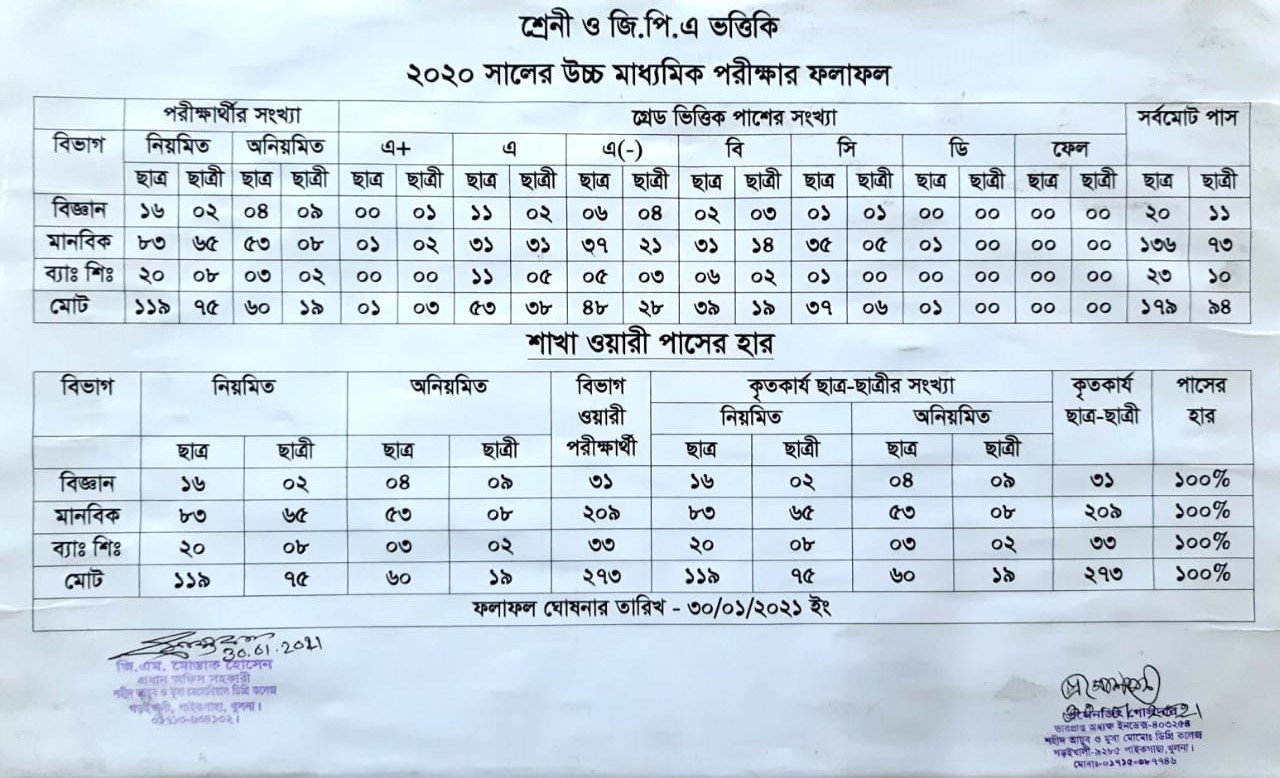 শ্রেনী ও জি.পি.এ ভত্তিকি
২০২০ সালের উচ্চ মাধ্যমিক পরীক্ষার ফলাফল
বিভাগ পরীক্ষার্থীর সংখ্যা গ্রেড ভিত্তিক পাশের সংখ্যা সর্বমোট পাস
নিয়মিত অনিয়মিত এ+ এ এ(-) বি সি ডি ফেল
ছাত্র ছাত্রী ছাত্র ছাত্রী ছাত্র ছাত্রী ছাত্র ছাত্রী ছাত্র ছাত্রী ছাত্র ছাত্রী ছাত্র ছাত্রী ছাত্র ছাত্রী ছাত্র ছাত্রী ছাত্র ছাত্রী
বিজ্ঞান ১৬ ০২ ০৪ ০৯ ০০ ০১ ১১ ০২ ০৬ ০৪ ০২ ০৩ ০১ ০১ ০০ ০০ ০০ ০০ ২০ ১১
মানবিক ৮৩ ৬৫ ৫৩ ০৮ ০১ ০২ ৩১ ৩১ ৩৭ ২১ ৩১ ১৪ ৩৫ ০৫ ০১ ০০ ০০ ০০ ১৩৬ ৭৩
ব্যাঃ শিঃ ২০ ০৮ ০৩ ০২ ০০ ০০ ১১ ০৫ ০৫ ০৩ ০৬ ০২ ০১ ০০ ০০ ০০ ০০ ০০ ২৩ ১০
মোট ১১৯ ৭৫ ৬০ ১৯ ০১ ০৩ ৫৩ ৩৮ ৪৮ ২৮ ৩৯ ১৯ ৩৭ ০৬ ০১ ০০ ০০ ০০ ১৭৯ ৯৪
শাখা ওয়ারী পাসের হার
বিভাগ নিয়মিত অনিয়মিত বিভাগ ওয়ারী পরীক্ষার্থী কৃতকার্য ছাত্র-ছাত্রীর সংখ্যা কৃতকার্য ছাত্র-ছাত্রী পাসের হার
নিয়মিত অনিয়মিত
ছাত্র ছাত্রী ছাত্র ছাত্রী ছাত্র ছাত্রী ছাত্র ছাত্রী
বিজ্ঞান ১৬ ০২ ০৪ ০৯ ৩১ ১৬ ০২ ০৪ ০৯ ৩১ ১০০%
মানবিক ৮৩ ৬৫ ৫৩ ০৮ ২০৯ ৮৩ ৬৫ ৫৩ ০৮ ২০৯ ১০০%
ব্যাঃ শিঃ ২০ ০৮ ০৩ ০২ ৩৩ ২০ ০৮ ০৩ ০২ ৩৩ ১০০%
মোট ১১৯ ৭৫ ৬০ ১৯ ২৭৩ ১১৯ ৭৫ ৬০ ১৯ ২৭৩ ১০০%
ফলাফল ঘোষনার তারিখ - ৩০/০১/২০২১ ইং
30.01.2021
জি.এম. মোস্তাক হোসেন
প্রধান অফিস সহকারী
শহীদ আয়ুব ও মুসা মেমোরিয়াল ডিগ্রি কলেজ
গড়ইখালী, পাইকগাছা, খুলনা।
ভারপ্রাপ্ত অধ্যক্ষ ইনডেক্স-৪০৩২৫৪
শহীদ আয়ুব ও মুসা মেমোঃ ডিগ্রি কলেজ
গড়ইখালী-৯২৮৫ পাইকগাছা, খুলনা।
মোবাঃ-০১৭১৫-৩৮৭৭৪৬